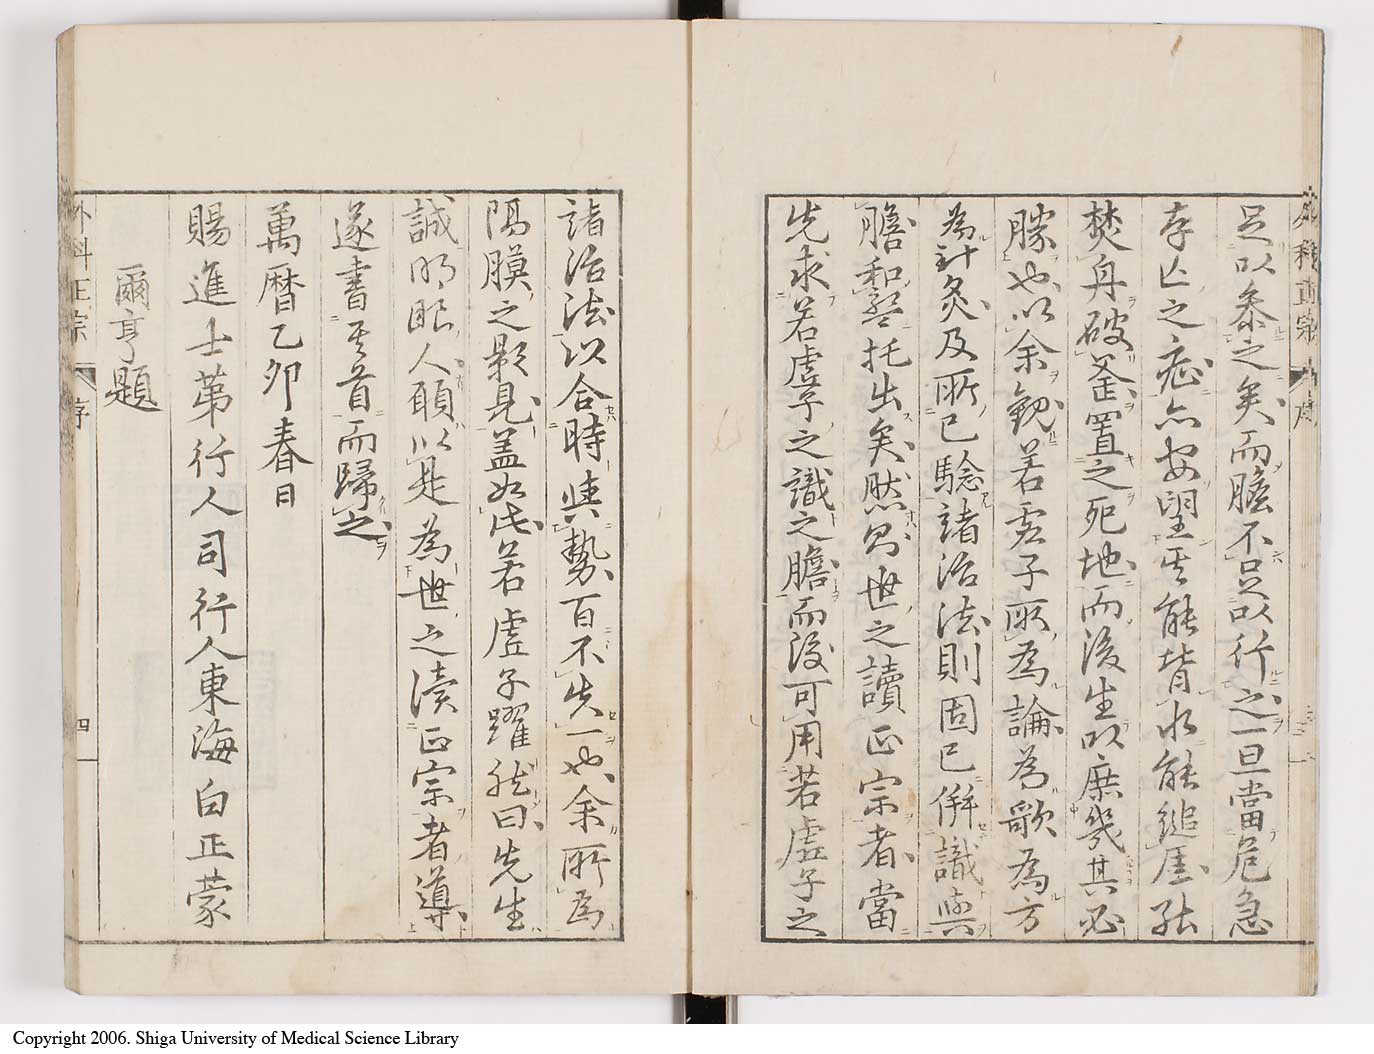 足以叅之矣而膽不足以行之一旦當危急
存亡之症亦安望其能背水能縋崖紿
焚舟破釜置之死地而後生以庶幾其必
勝也以余觀若虛子所為論為歌為方
為針灸及所已驗諸治法則固已併識與
膽和盤托出矣然則世之讀正宗者當
先求若虛子之識之膽而後可用若虛子之
諸治法以合時與勢百不失一也余所為
隔膜之影見蓋如此若虛子躍然曰先生
誠明眼人願以是為世之讀正宗者導
遂書其首而歸之
萬曆乙卯春日
賜進士第行人司行人東海白正蒙
爾亨題
外科正宗 序 四
Copyright 2006. Shiga University of Medical Science Library